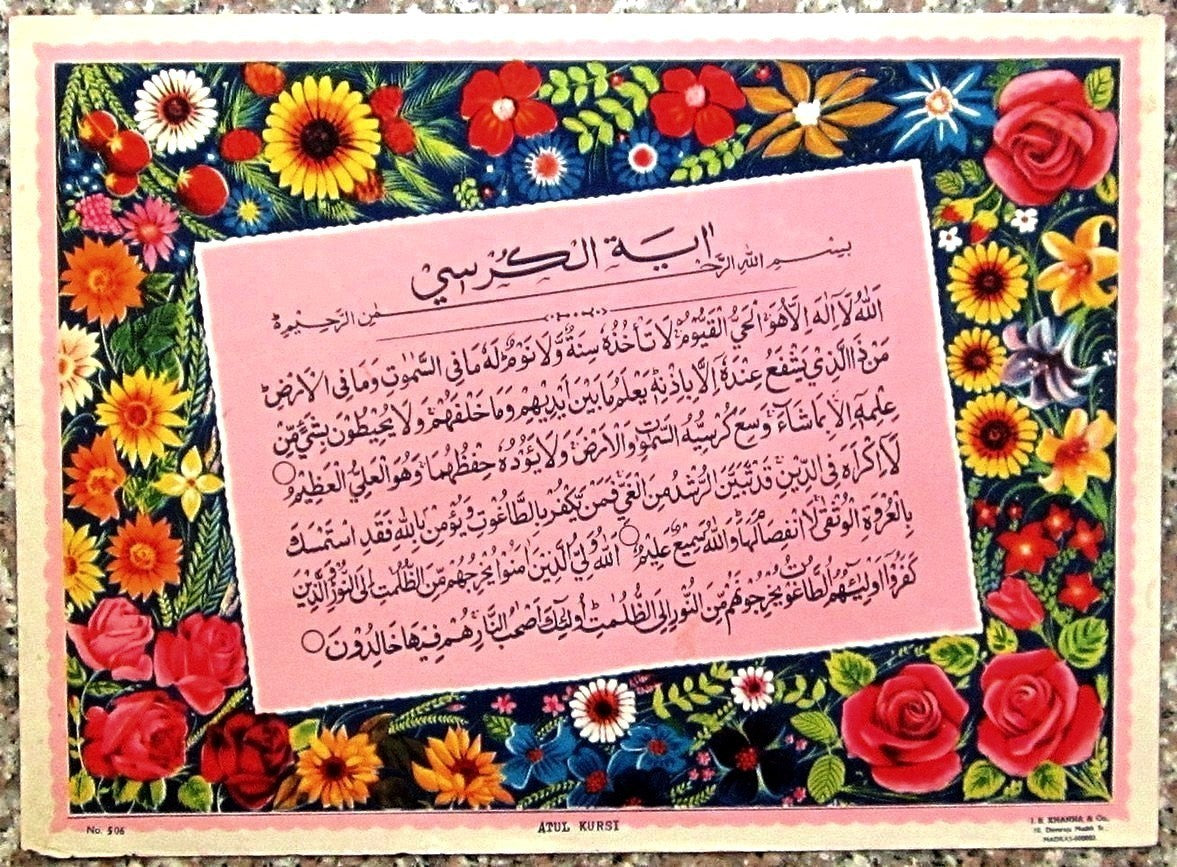 اٰيَةُ الْكُرْسِيْ
بِسْمِ اللهِ الرَّحْمٰنِ الرَّحِيْمِ
اَللهُ لَآ اِلٰهَ اِلَّا هُوَ الْحَيُّ الْقَيُّوْمُ لَا تَأْخُذُهٗ سِنَةٌ وَّلَا نَوْمٌ لَهٗ مَا فِي السَّمٰوٰتِ وَمَا فِى الْاَرْضِ
مَنْ ذَا الَّذِيْ يَشْفَعُ عِنْدَهٗ اِلَّا بِاِذْنِهٖ يَعْلَمُ مَا بَيْنَ اَيْدِيْهِمْ وَمَا خَلْفَهُمْ وَلَا يُحِيْطُوْنَ بِشَيْءٍ مِّنْ
عِلْمِهٖ اِلَّا بِمَا شَاءَ وَسِعَ كُرْسِيُّهُ السَّمٰوٰتِ وَالْاَرْضَ وَلَا يَؤُدُهٗ حِفْظُهُمَا وَهُوَ الْعَلِيُّ الْعَظِيْمُ
لَا اِكْرَاهَ فِى الدِّيْنِ قَدْ تَّبَيَّنَ الرُّشْدُ مِنَ الْغَيِّ فَمَنْ يَّكْفُرْ بِالطَّاغُوْتِ وَيُؤْمِنْ بِاللهِ فَقَدِ اسْتَمْسَكَ
بِالْعُرْوَةِ الْوُثْقٰى لَا انْفِصَامَ لَهَا وَاللهُ سَمِيْعٌ عَلِيْمٌ اَللهُ وَلِيُّ الَّذِيْنَ اٰمَنُوْا يُخْرِجُهُمْ مِّنَ الظُّلُمٰتِ اِلَى النُّوْرِ وَالَّذِيْنَ
كَفَرُوْا اَوْلِيٰئُهُمُ الطَّاغُوْتُ يُخْرِجُوْنَهُمْ مِّنَ النُّوْرِ اِلَى الظُّلُمٰتِ اُولٰئِكَ اَصْحٰبُ النَّارِ هُمْ فِيْهَا خَالِدُوْنَ
No. 506
ATUL KURSI
J. B. KHANNA & Co.,
MADRAS-600003.